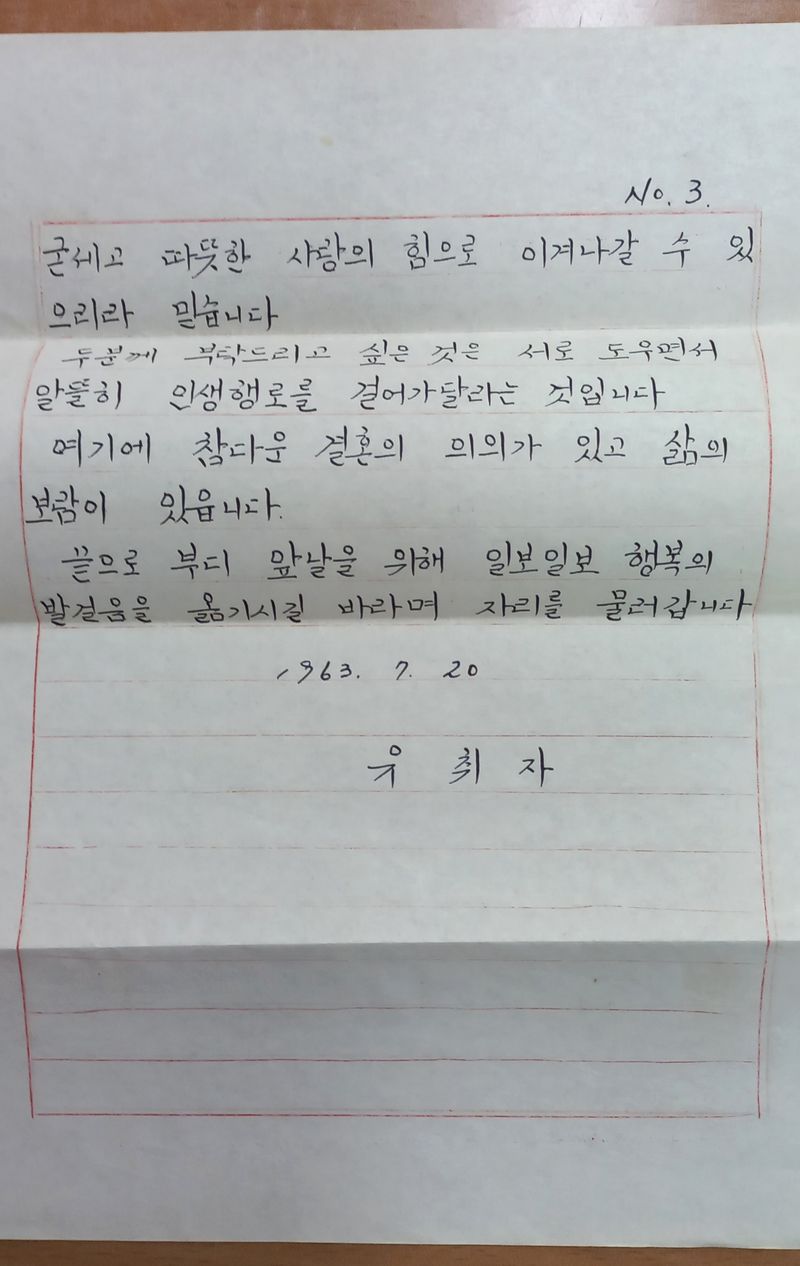 No. 3.
굳세고 따뜻한 사랑의 힘으로 이겨나갈 수 있
으리라 믿습니다
두분께 부탁드리고 싶은 것은 서로 도우면서
알뜰히 인생행로를 걸어가달라는 것입니다
여기에 참다운 결혼의 의의가 있고 삶의
보람이 있읍니다.
끝으로 부디 앞날을 위해 일보일보 행복의
발걸음을 옮기시길 바라며 자리를 물러갑니다
1963. 7. 20
우 취 자